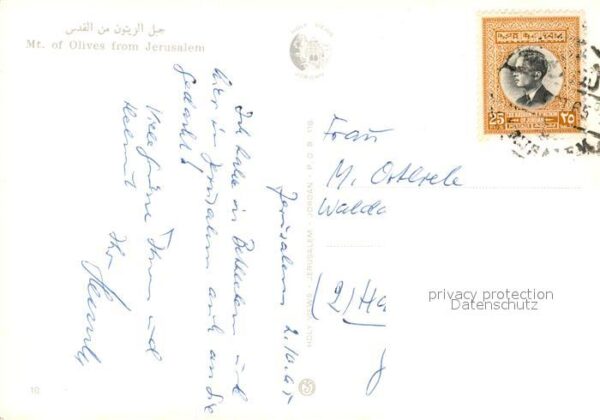 جبل الزيتون من القدس
Mt. of Olives from Jerusalem
Jerusalem 2.10.65
Ich habe in Bethlehem und
hier in Jerusalem auch an Sie
gedacht!
Viele Grüße Ihnen und
Helmut
Ihr
25
٢٥
Frau
M.
Walda
(2) Ha
privacy protection
Datenschutz
10